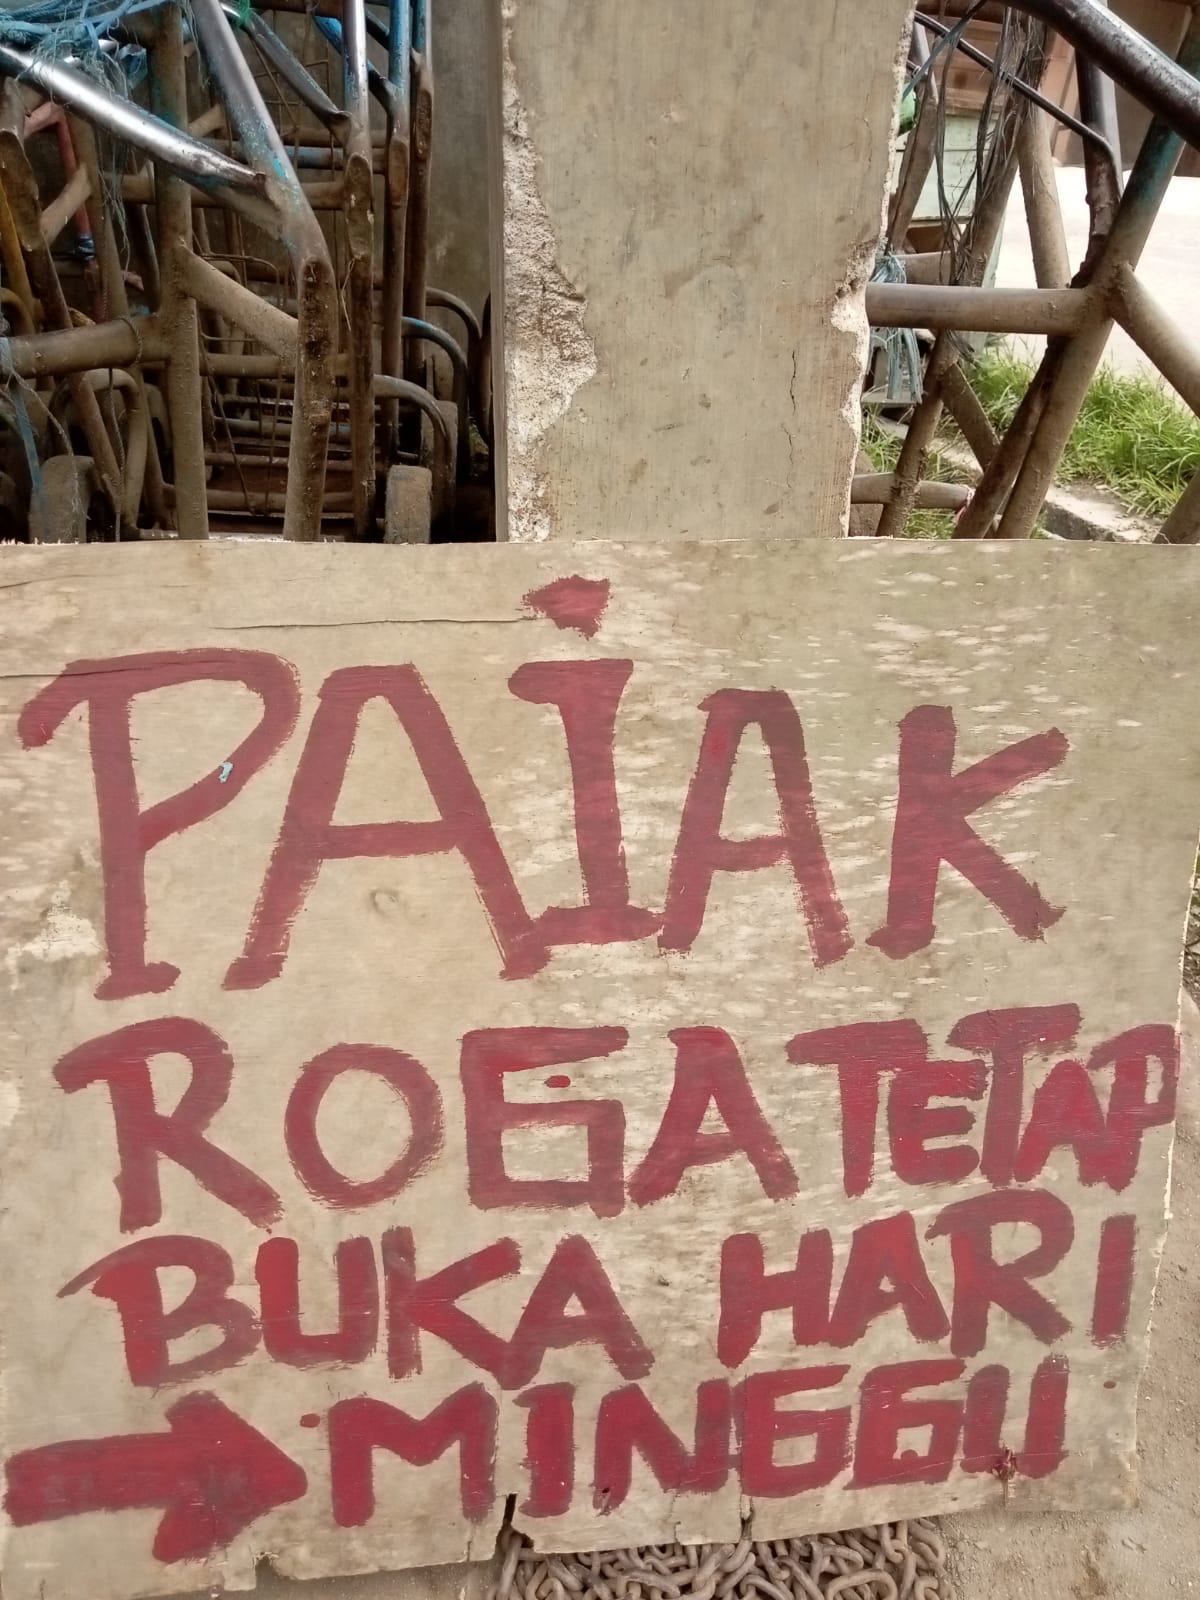 PAIAK
ROGA TETAP
BUKA HARI
MINGGU